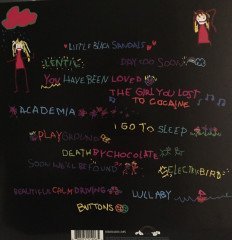 "LITTLE BLACK SANDALS"
LENTIL DAY TOO SOON
YOU HAVE BEEN LOVED
THE GIRL YOU LOST
TO COCAINE
ACADEMIA
I GO TO SLEEP
PLAYGROUND
DEATH BY CHOCOLATE
SOON WE'LL BE FOUND ELECTRIC BIRD
BEAUTIFUL CALM DRIVING LULLABY
BUTTONS